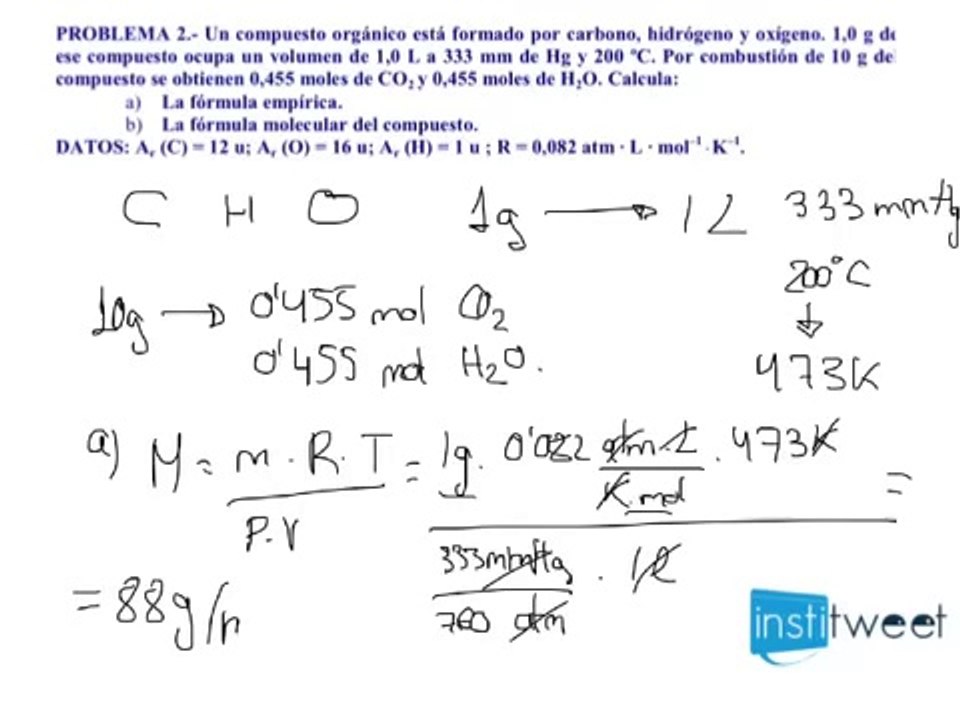 PROBLEMA 2.- Un compuesto orgánico está formado por carbono, hidrógeno y oxígeno. 1,0 g de
ese compuesto ocupa un volumen de 1,0 L a 333 mm de Hg y 200 ºC. Por combustión de 10 g de
compuesto se obtienen 0,455 moles de CO₂ y 0,455 moles de H₂O. Calcula:
a) La fórmula empírica.
b) La fórmula molecular del compuesto.
DATOS: Aᵣ (C) = 12 u; Aᵣ (O) = 16 u; Aᵣ (H) = 1 u ; R = 0,082 atm · L · mol⁻¹ · K⁻¹.
C H O 1g → 1 L 333 mmHg
200°C
↓
10g → 0'455 mol CO₂
0'455 mol H₂O.
473K
a) M = m · R · T = 1g · 0'082 atm · L · 473K =
P.V K.mol
333mmHg · 1ℓ
760 atm
= 88g/
institweet